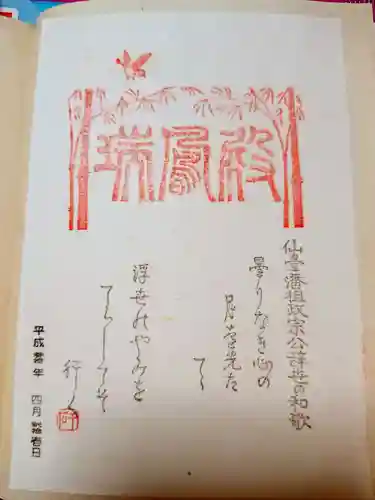 瑞鳳殿
仙臺藩祖政宗公辞世の和歌
曇りなき心の
月を先だ
てゝ
浮世のやみを
てらしてぞ
行く
平成 年 四月 日